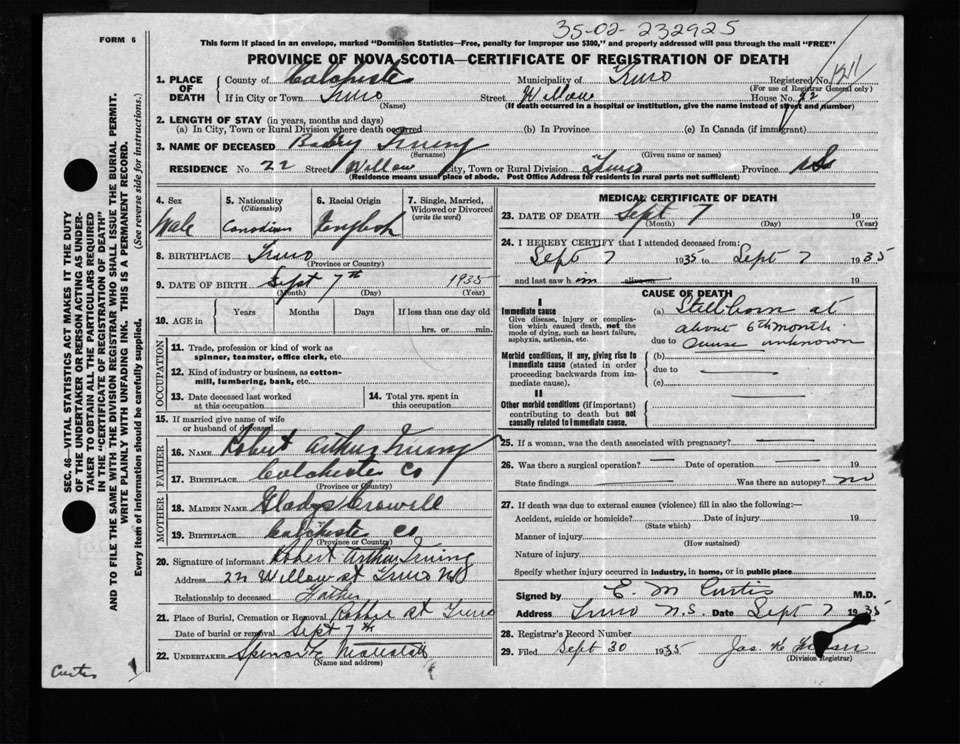 35-02-232925
FORM 6
This form if placed in an envelope, marked "Dominion Statistics—Free, penalty for improper use $300," and properly addressed will pass through the mail "FREE"
PROVINCE OF NOVA SCOTIA—CERTIFICATE OF REGISTRATION OF DEATH
1. PLACE OF DEATH
County of Colchester Municipality of Truro Registered No. 1211
(For use of Registrar General only)
If in City or Town Truro Street Willow House No. 22
(Name) (If death occurred in a hospital or institution, give the name instead of street and number)
2. LENGTH OF STAY (in years, months and days)
(a) In City, Town or Rural Division where death occurred (b) In Province (c) In Canada (if immigrant)
3. NAME OF DECEASED Baby Irving
(Surname) (Given name or names)
RESIDENCE No. 22 Street Willow City, Town or Rural Division Truro Province N.S.
(Residence means usual place of abode. Post Office Address for residents in rural parts not sufficient)
4. Sex
Male
5. Nationality
(Citizenship)
Canadian
6. Racial Origin
English
7. Single, Married, Widowed or Divorced
(write the word)
8. BIRTHPLACE Truro
(Province or Country)
9. DATE OF BIRTH Sept 7th 1935
(Month) (Day) (Year)
10. AGE in Years Months Days If less than one day old
hrs. or min.
OCCUPATION
11. Trade, profession or kind of work as
spinner, teamster, office clerk, etc.
12. Kind of industry or business, as cotton-
mill, lumbering, bank, etc.
13. Date deceased last worked
at this occupation
14. Total yrs. spent in
this occupation
15. If married give name of wife
or husband of deceased
FATHER
16. NAME Robert Arthur Irving
17. BIRTHPLACE Colchester Co
(Province or Country)
MOTHER
18. MAIDEN NAME Gladys Crowell
19. BIRTHPLACE Colchester Co
(Province or Country)
20. Signature of informant Robert Arthur Irving
Address 22 Willow st Truro NS
Relationship to deceased Father
21. Place of Burial, Cremation or Removal Robbie st Truro
Date of burial or removal Sept 7th
22. UNDERTAKER
(Name and address)
MEDICAL CERTIFICATE OF DEATH
23. DATE OF DEATH Sept 7 19
(Month) (Day) (Year)
24. I HEREBY CERTIFY that I attended deceased from:
Sept 7 1935 to Sept 7 1935
and last saw h im alive on 19
CAUSE OF DEATH
I
Immediate cause
Give disease, injury or complication which caused death, not the mode of dying, such as heart failure, asphyxia, asthenia, etc.
(a) Stillborn at
about 6th month
due to Cause unknown
Morbid conditions, if any, giving rise to immediate cause (stated in order proceeding backwards from immediate cause).
(b)
due to
(c)
II
Other morbid conditions (if important) contributing to death but not causally related to immediate cause.
25. If a woman, was the death associated with pregnancy?
26. Was there a surgical operation? Date of operation 19
State findings Was there an autopsy? no
27. If death was due to external causes (violence) fill in also the following:—
Accident, suicide or homicide? Date of injury 19
(State which)
Manner of injury
(How sustained)
Nature of injury
Specify whether injury occurred in industry, in home, or in public place
Signed by E. M Curtis M.D.
Address Truro N.S. Date Sept 7 1935
28. Registrar's Record Number
29. Filed Sept 30 1935
(Division Registrar)
SEC. 46—VITAL STATISTICS ACT MAKES IT THE DUTY
OF THE UNDERTAKER OR PERSON ACTING AS UNDER-
TAKER TO OBTAIN ALL THE PARTICULARS REQUIRED
IN THE "CERTIFICATE OF REGISTRATION OF DEATH"
AND TO FILE THE SAME WITH THE DIVISION REGISTRAR WHO SHALL ISSUE THE BURIAL PERMIT.
WRITE PLAINLY WITH UNFADING INK. THIS IS A PERMANENT RECORD.
Every item of information should be carefully supplied. (See reverse side for instructions.)
Curtis